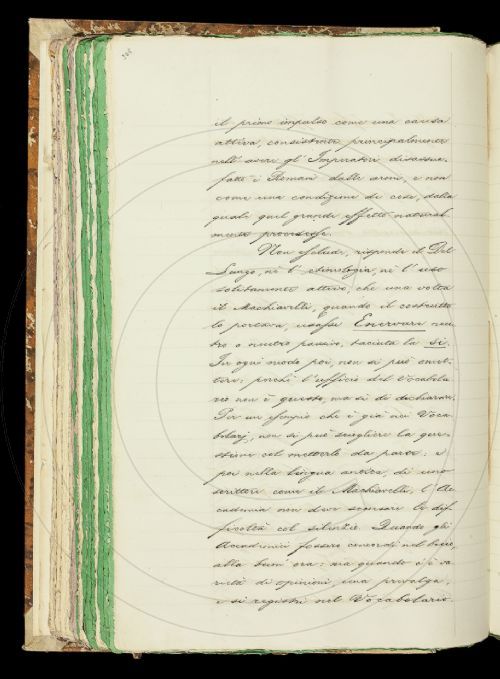 il primo impulso come una causa
attiva, consistente principalmente
nell'avere gl'Imperatori disassue-
fatti i Romani dalle armi, e non
come una condizione di cose, dalla
quale quel grande effetto natural
mente procedesse.
Non esclude, risponde il Del
Lungo, nè l'etimologia, nè l'uso
solitamente attivo, che una volta
il Machiavelli, quando il costrutto
lo portava, usasse Enervare neu
tro o neutro passivo, taciuta la si.
In ogni modo poi, non si può omet-
tere; perchè l'ufficio del Vocabola
rio non è questo, ma sì di dichiarare.
Per un esempio che è già nei Voca-
bolarj, non si può sciogliere la que-
stione col metterlo da parte: e
poi nella lingua antica, di uno
scrittore come il Machiavelli, l'Ac
cademia non deve scansare le dif
ficoltà col silenzio. Quando gli
Accademici fossero concordi nel
alla buon'ora: ma quando v'è va
rietà di opinioni una prevalga,
e si registri nel Vocabolario.